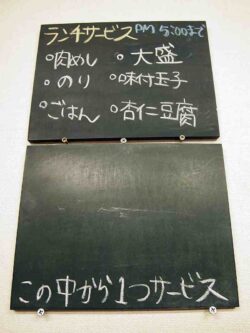 ランチサービス PM 5:00まで
○肉めし ○大盛
○のり ○味付玉子
○ごはん ○杏仁豆腐
この中から1つサービス